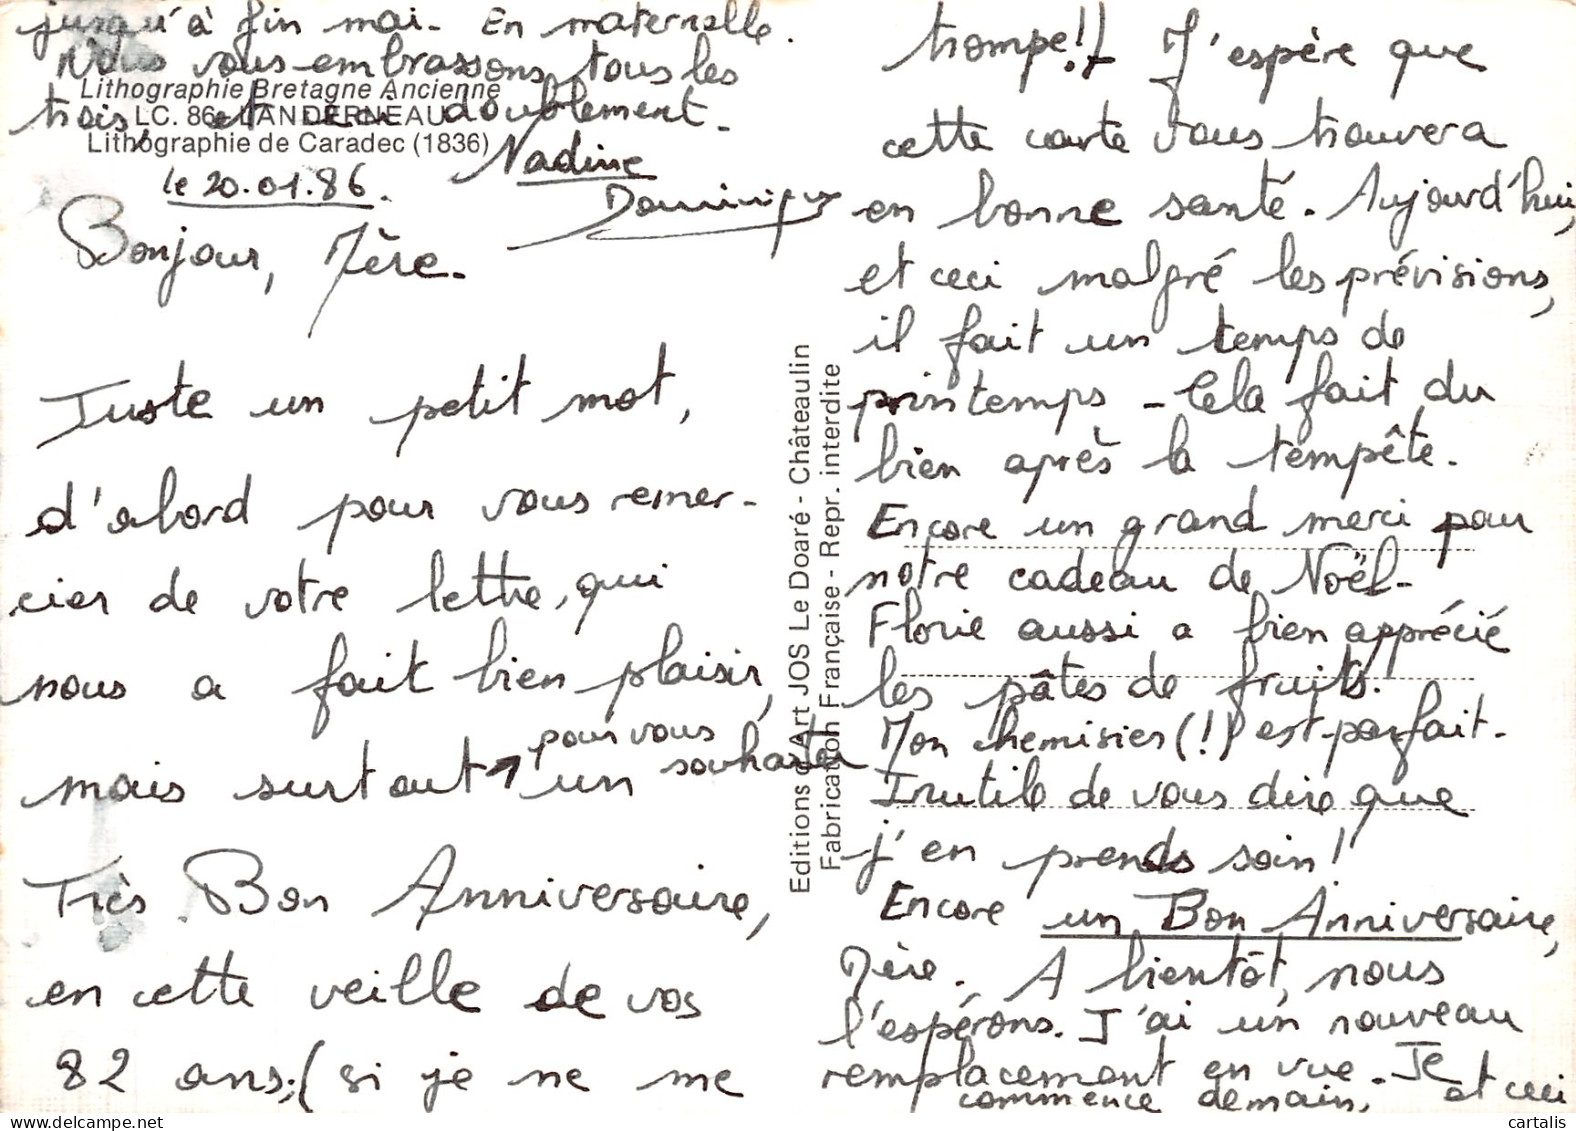 le 20.01.86.
Bonjour, Mère.
Juste un petit mot,
d'abord pour vous remer-
cier de votre lettre, qui
nous a fait bien plaisir,
mais surtout pour vous souhaiter un
Très Bon Anniversaire,
en cette veille de vos
82 ans, (si je ne me
trompe!) J'espère que
cette carte vous trouvera
en bonne santé. Aujourd'hui,
et ceci malgré les prévisions,
il fait un temps de
printemps - Cela fait du
bien après la tempête.
Encore un grand merci pour
notre cadeau de Noël.
Florie aussi a bien apprécié
les pâtes de fruits.
Mon chemisier (!) est parfait.
Inutile de vous dire que
j'en prends soin!
Encore un Bon Anniversaire,
Mère. A bientôt, nous
l'espérons. J'ai un nouveau
remplacement en vue. Je
commence demain, et ceci
jusqu'à fin mai. En maternelle.
Nous vous embrassons tous les
trois, et doublement.
Nadine
Dominique
Lithographie Bretagne Ancienne
LC. 86 LANDERNEAU
Lithographie de Caradec (1836)
Editions d'Art JOS Le Doaré - Châteaulin
Fabrication Française - Repr. interdite
cartalis